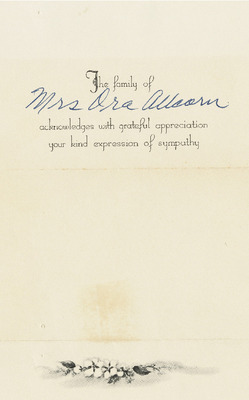 The family of
Mrs Ora Allcorn
acknowledges with grateful appreciation
your kind expression of sympathy